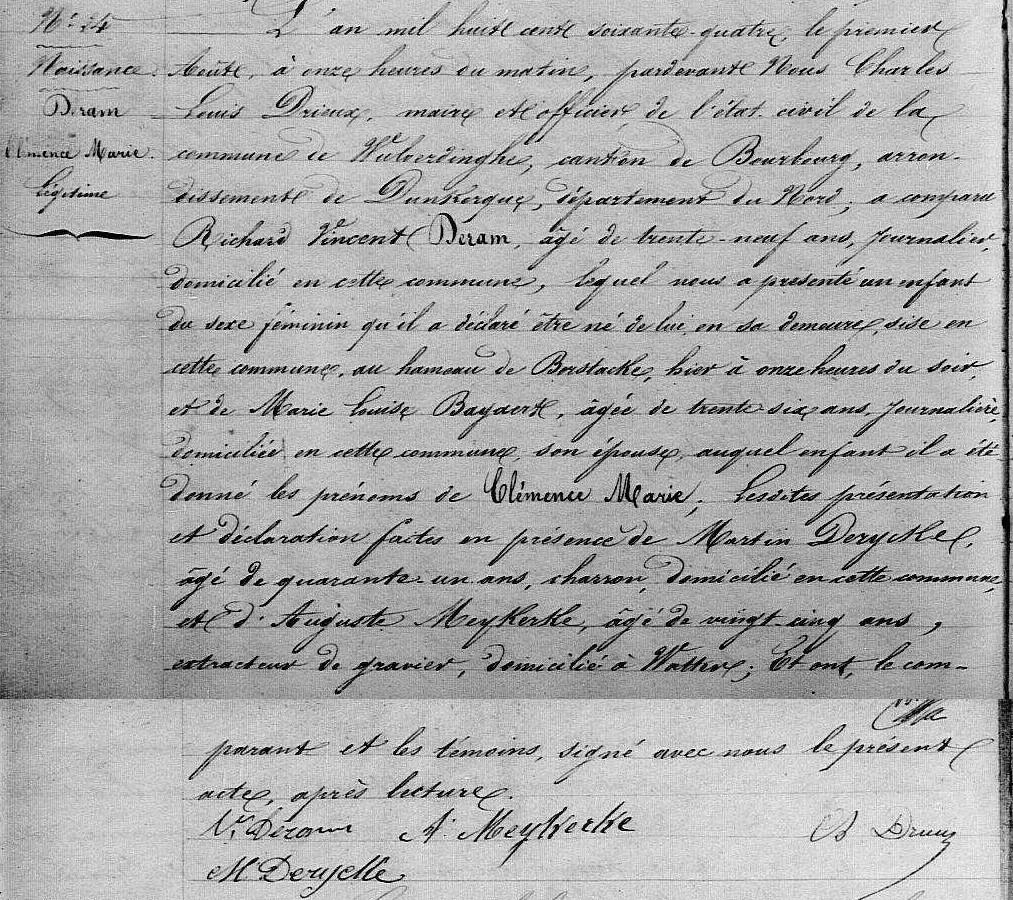 N° 24
Naissance.
Deram
Clémence Marie.
légitime
L'an mil huit cent soixante-quatre, le premier
Août, à onze heures du matin, pardevant Nous Charles
Louis Drieux, maire et officier de l'état civil de la
commune de Wulverdinghe, canton de Bourbourg, arron-
dissement de Dunkerque, département du Nord, a comparu
Richard Vincent Deram, âgé de trente-neuf ans, journalier,
domicilié en cette commune, lequel nous a présenté un enfant
du sexe féminin qu'il a déclaré être né de lui, en sa demeure, sise en
cette commune, au hameau de Borstacke, hier à onze heures du soir,
et de Marie Louise Baydert, âgée de trente six ans, journalière,
domiciliée en cette commune, son épouse, auquel enfant il a été
donné les prénoms de Clémence Marie, Lesdites présentation
et déclaration faites en présence de Martin Derycke,
âgé de quarante-un ans, charron, domicilié en cette commune,
et d'Auguste Meykerke, âgé de vingt-cinq ans,
extracteur de gravier, domicilié à Watten; Et ont, le com-
parant et les témoins, signé avec nous le présent
acte, après lecture.
Vt Deram A. Meykerke Ch Drieux
M Derycke